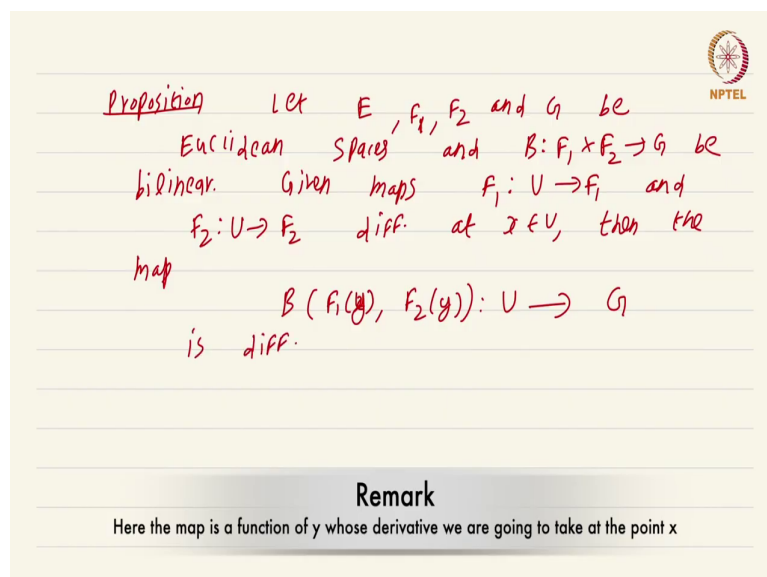 NPTEL
Proposition Let E, F₁, F₂ and G be
Euclidean spaces and B: F₁ × F₂ → G be
bilinear. Given maps F₁: U → F₁ and
F₂: U → F₂ diff. at x ∈ U, then the
map
B(F₁(y), F₂(y)): U → G
is diff.
Remark
Here the map is a function of y whose derivative we are going to take at the point x